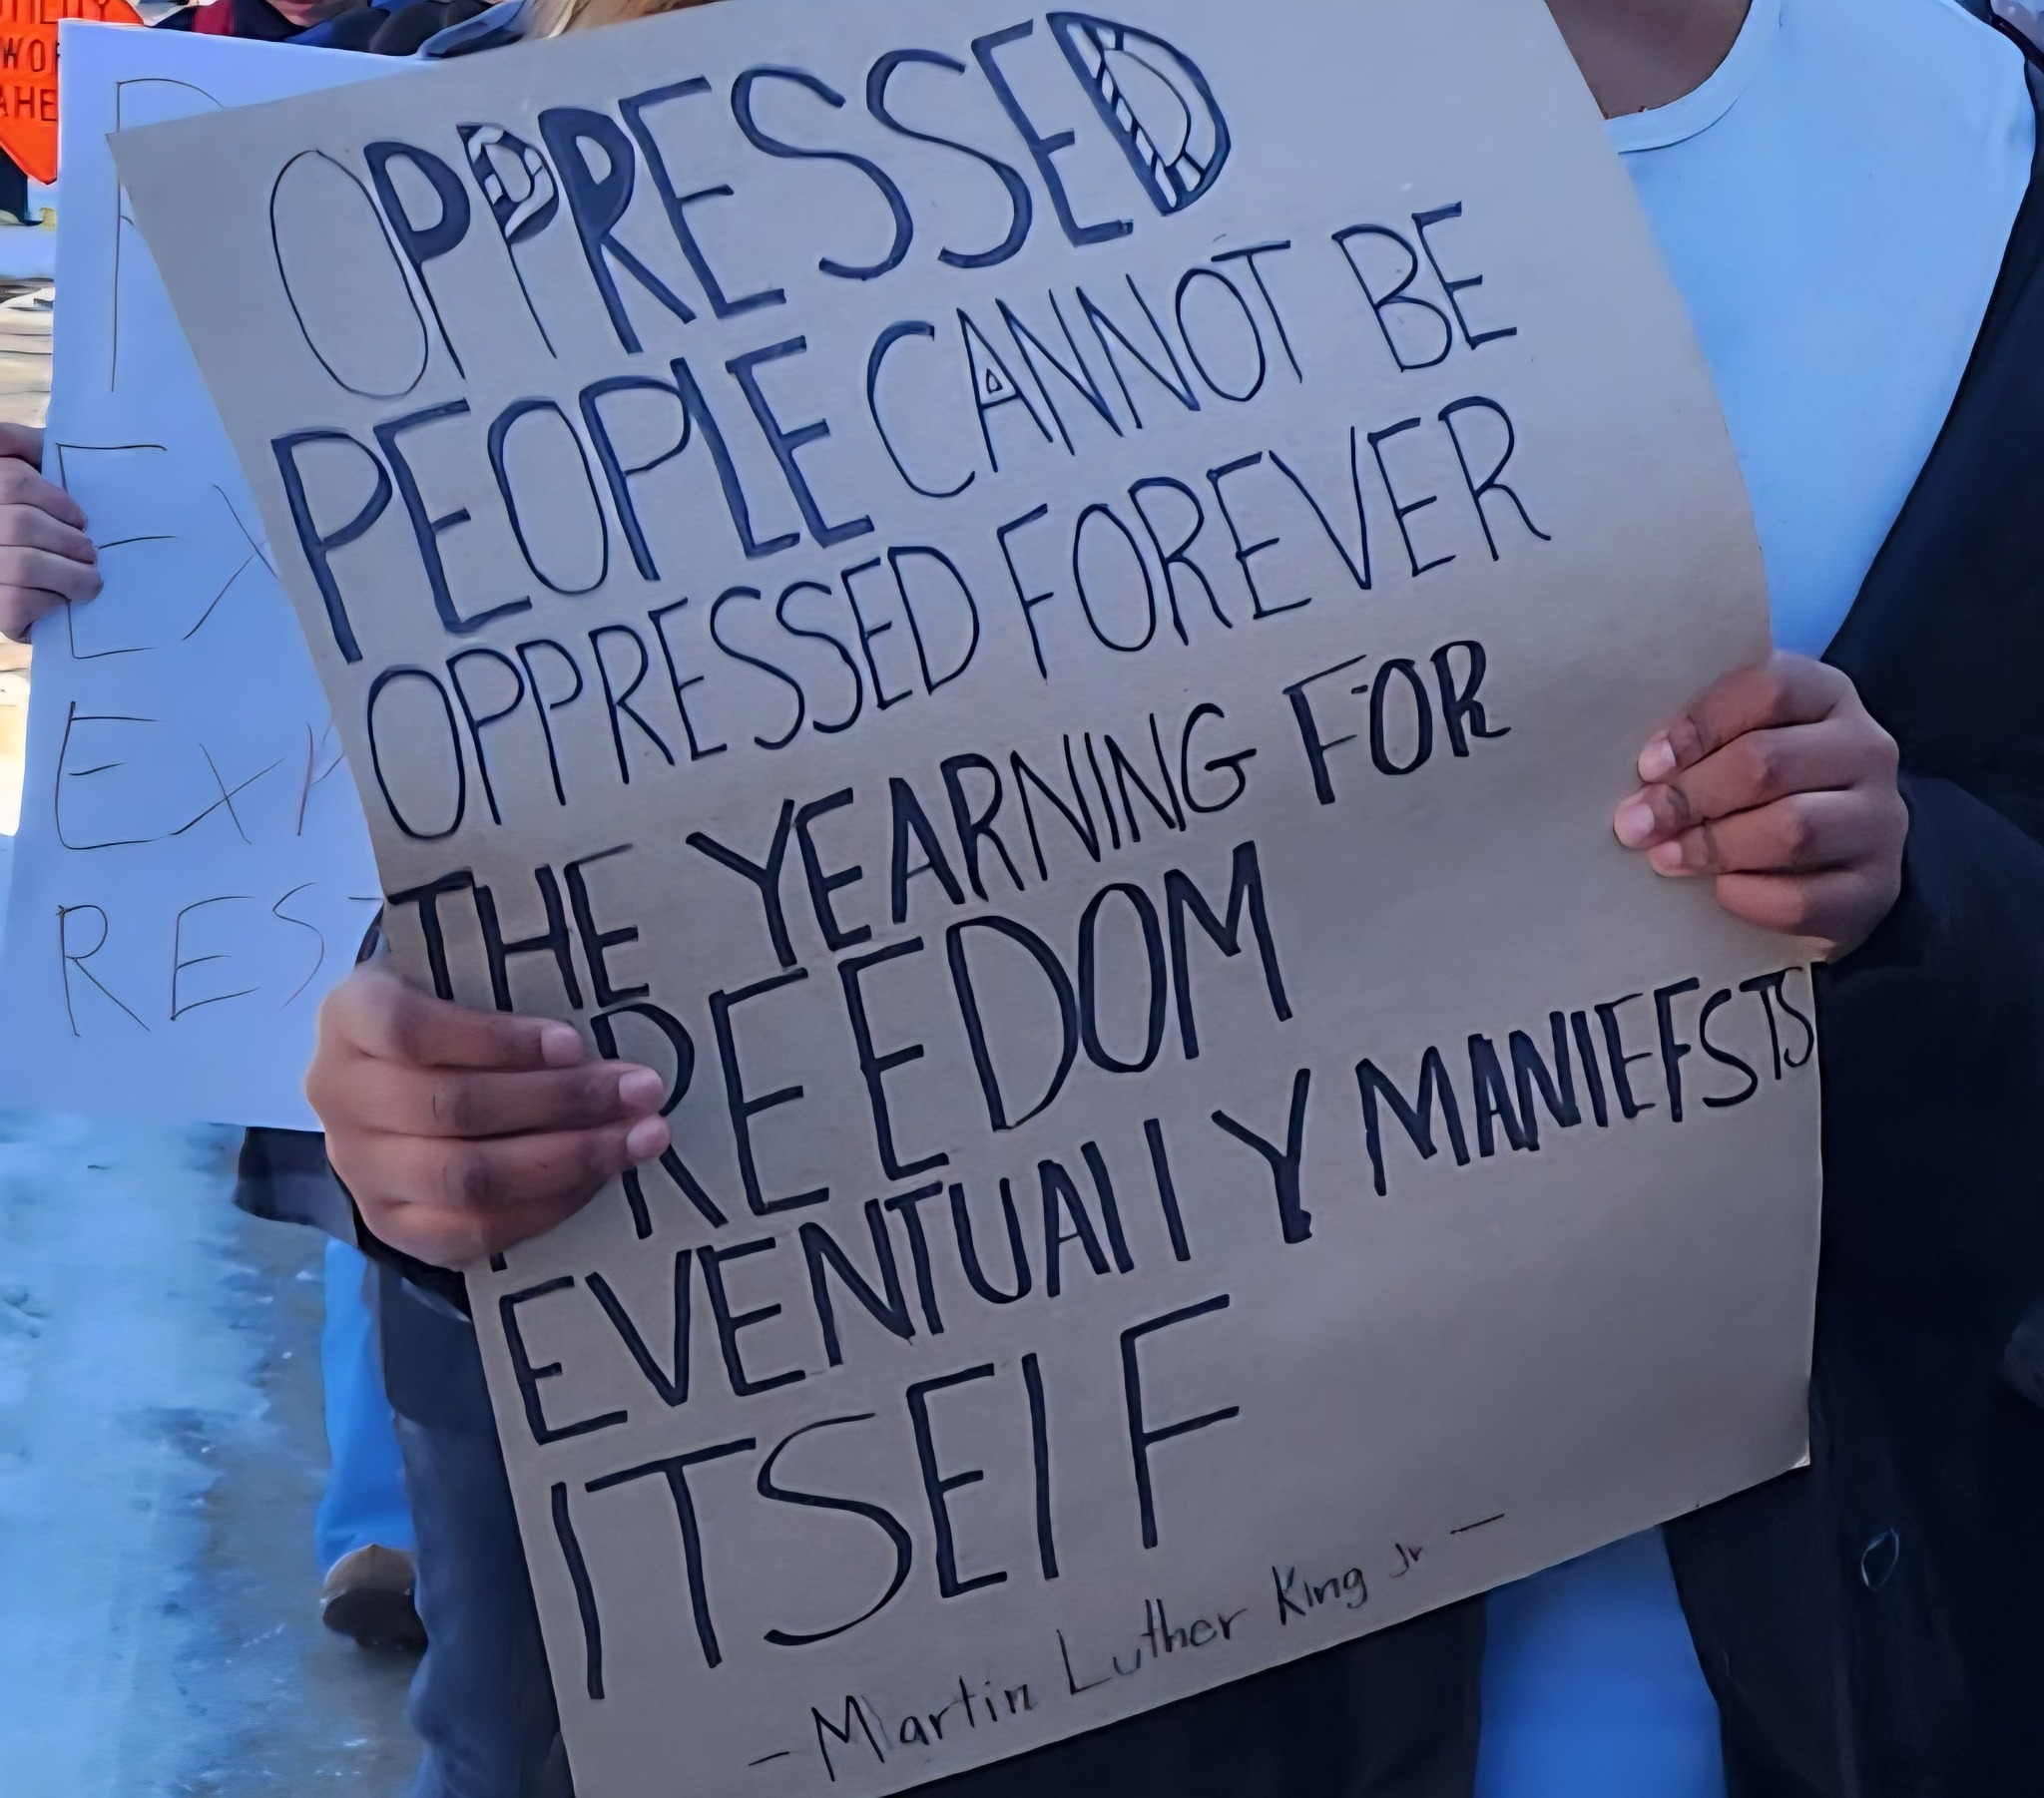 OPPRESSED
PEOPLE CANNOT BE
OPPRESSED FOREVER
THE YEARNING FOR
FREEDOM
EVENTUALLY MANIEFSTS
ITSELF
- Martin Luther King Jr -